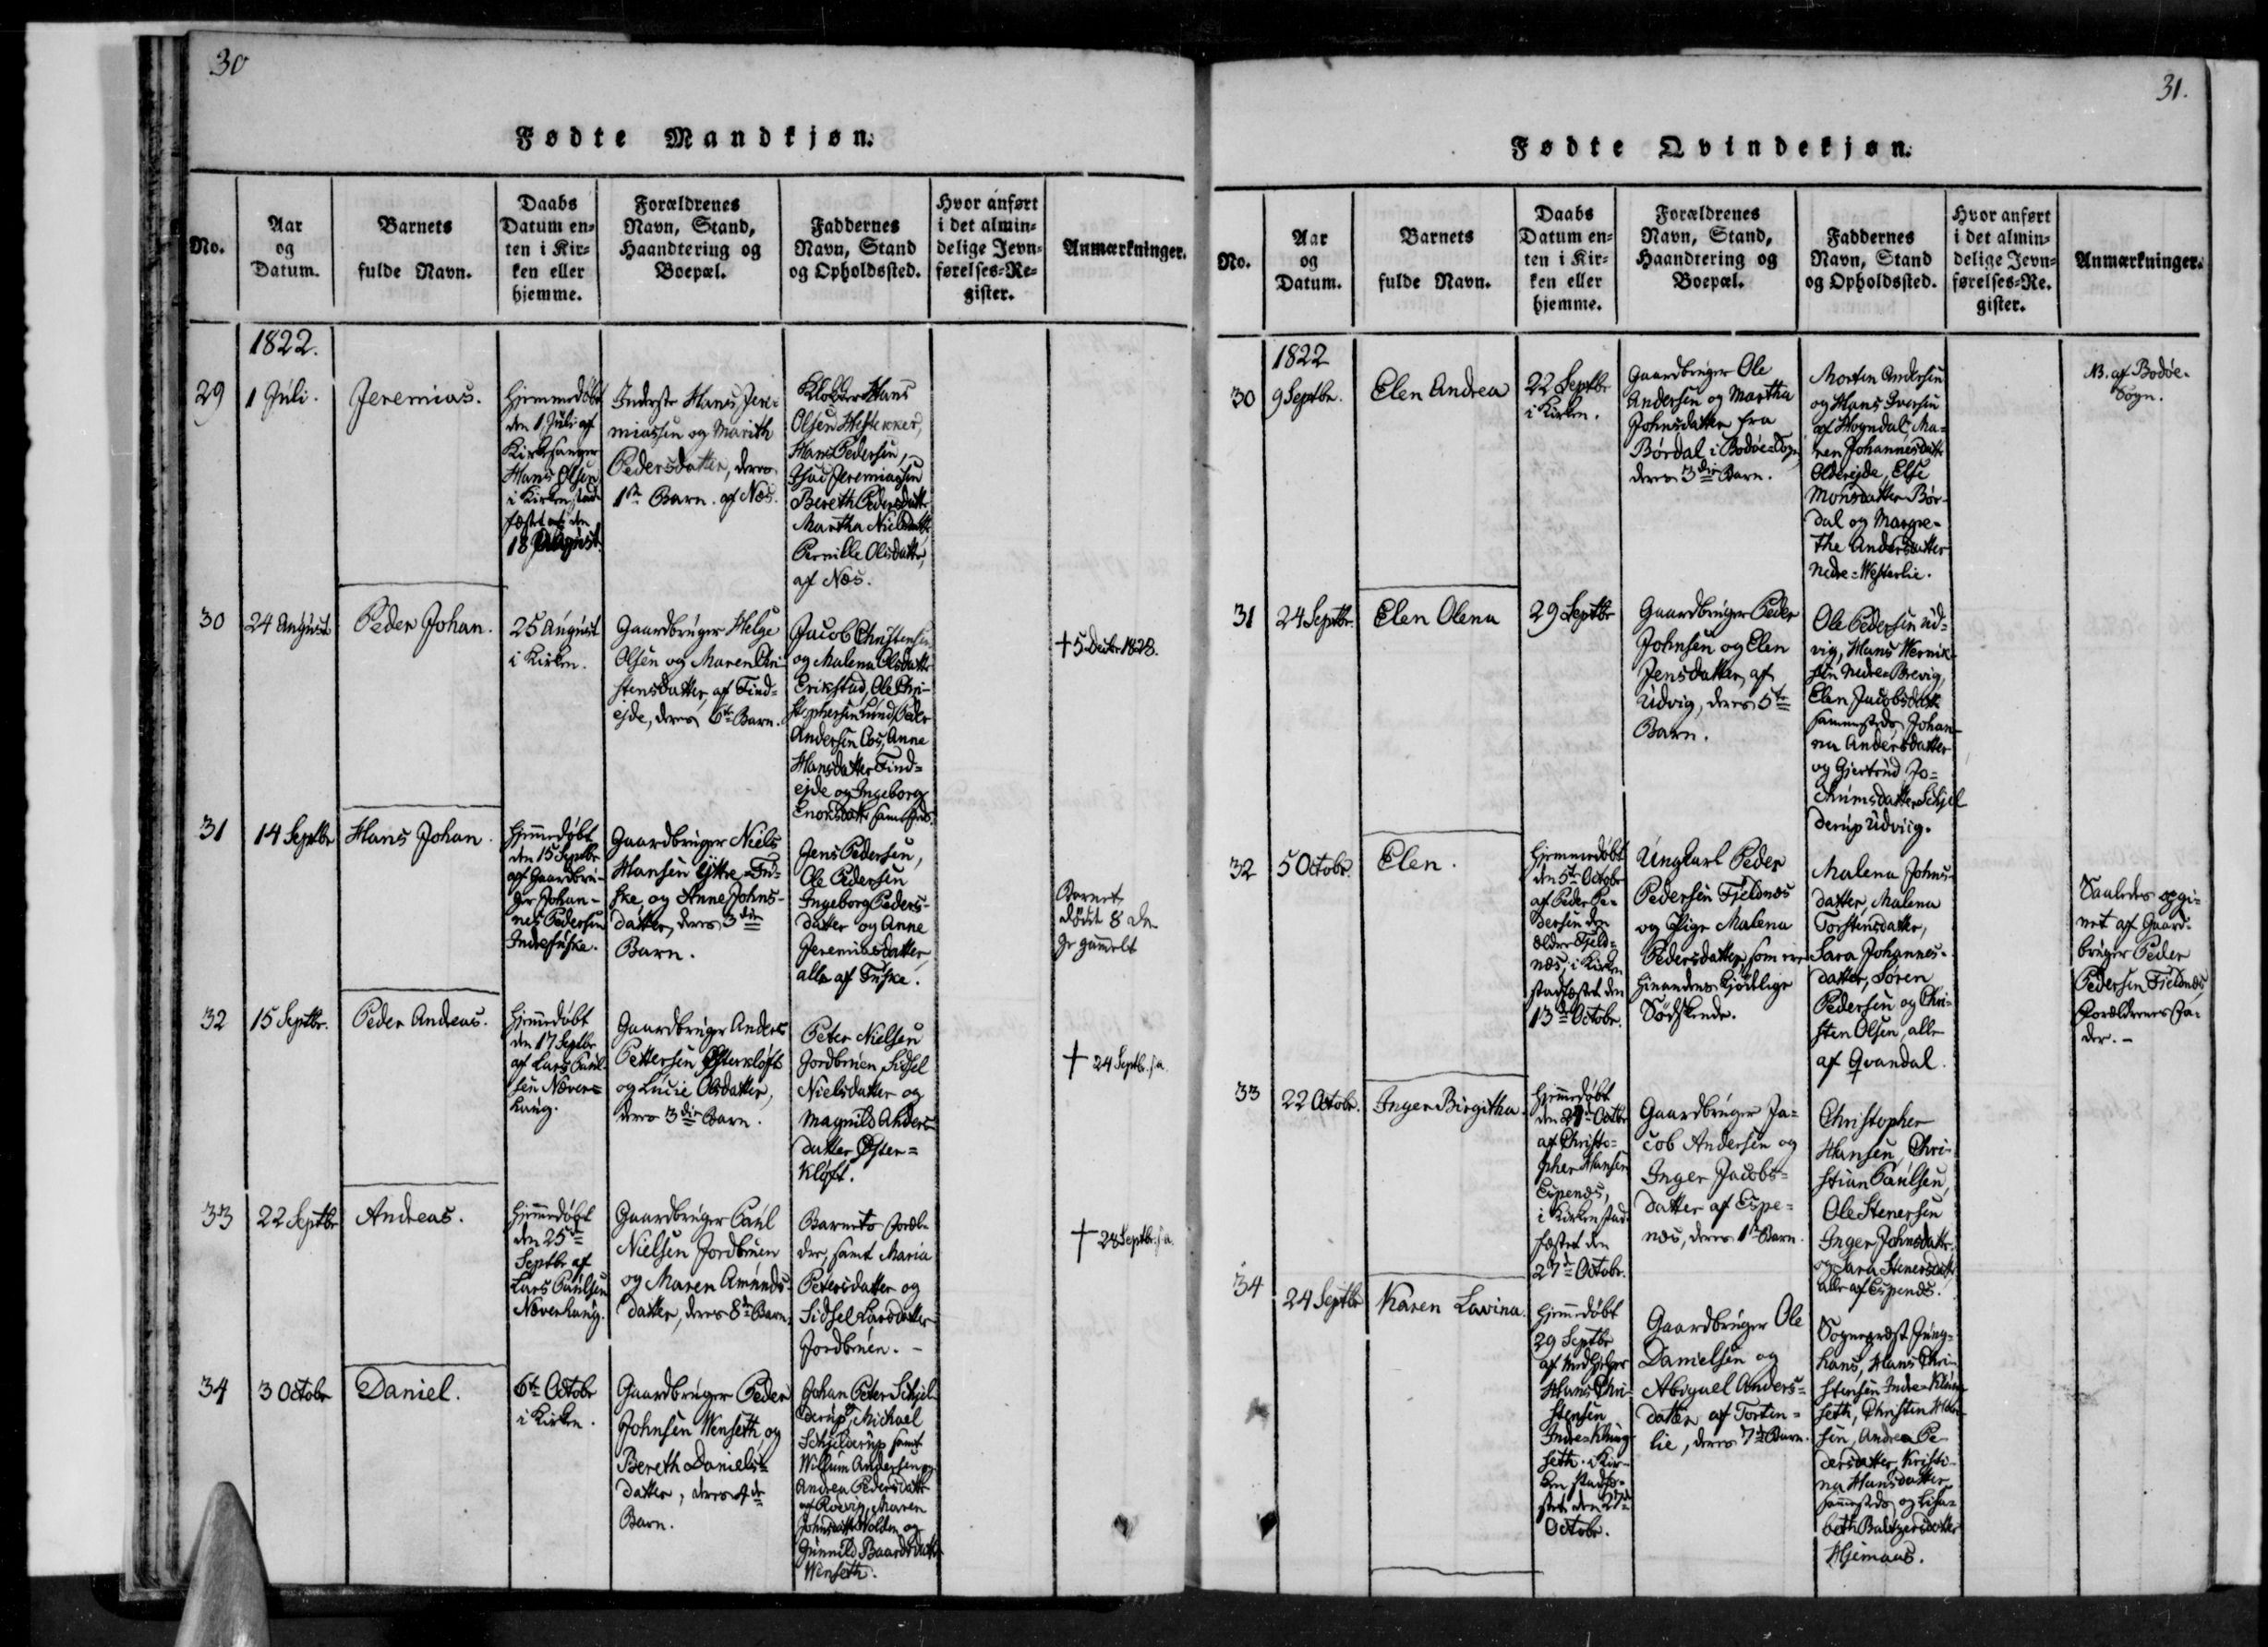 30
Fødte Mandkjøn.
No.
Aar
og
Datum.
Barnets
fulde Navn.
Daabs
Datum en-
ten i Kir-
ken eller
hjemme.
Forældrenes
Navn, Stand,
Haandtering og
Boepæl.
Faddernes
Navn, Stand
og Opholdssted.
Hvor anført
i det almin-
delige Jevn-
førelses-Re-
gister.
Anmærkninger.
1822.
29
1 Juli.
Jeremias.
Hjemmedøbt
den 1 Juli af
Kirkesanger
Hans Olsen
i Kirken stad-
fæstet den
18 August.
Inderste Hans Jere-
miassen og Marith
Pedersdatter, deres
1te Barn. af Næs.
Klokker Hans
Olsen
Hans Pedersen,
Jeremiassen
Bereth Pedersdatter
Martha Nielsdatter
Pernille Olsdatter,
af Næs.
30
24 August
Peder Johan.
25 August
i Kirken.
Gaardbruger Helge
Olsen og Maren Chri-
stensdatter, af Find-
ejde, deres 6te Barn.
Jacob Christensen
og Malena Olsdatter
Erikstad, Ole Chri-
stophersen Lund, Peder
Andersen Aas, Anne
Hansdatter Find-
ejde og Ingeborg
Enoksdatter sammesteds.
† 5 Decbr 1828.
31
14 Septbr
Hans Johan.
Hjemmedøbt
den 15 Septbr
af Gaardbru-
ger Johan-
nes Pedersen
Indrefuske.
Gaardbruger Niels
Hansen Ÿttre-Fu-
ske og Anne Johns-
datter, deres 3die
Barn.
Jens Pedersen,
Ole Pedersen
Ingeborg Peders-
datter og Anne
Jeremiasdatter
alle af Fuske.
Barnet
døde 8 Da-
ge gammelt
32
15 Septbr.
Peder Andreas.
Hjemmedøbt
den 17 Septbr
af Lars Paul-
sen Næver-
haug.
Gaardbruger Anders
Pettersen Østerkløft
og Lucie Olsdatter,
deres 3die Barn.
Peter Nielsen
Jordbruen, Sidsel
Nielsdatter og
Magnild Anders-
datter Øster-
kløft.
† 24 Septbr. s. a.
33
22 Septbr
Andreas.
Hjemmedøbt
den 25de
Septbr af
Lars Paulsen
Næverhaug.
Gaardbruger Paul
Nielsen Jordbruen
og Maren Amunds-
datter, deres 8de Barn.
Barnets Foræl-
dre, samt Maria
Petersdatter og
Sidsel Larsdatter
Jordbruen. –
† 28 Septbr. s. a.
34
3 Octobr
Daniel.
6te Octobr
i Kirken.
Gaardbruger Peder
Johnsen Wenseth og
Bereth Daniels-
datter, deres 4de
Barn.
Johan Peter Schjel-
derup, Michael
Schjelderup samt
Willum Andersen og
Andrea Pedersdatter
af Røevig, Maren
Johnsdatter Wolden og
Gunnild Baardsdatter
Wenseth.
31.
Fødte Qvindekjøn.
No.
Aar
og
Datum.
Barnets
fulde Navn.
Daabs
Datum en-
ten i Kir-
ken eller
hjemme.
Forældrenes
Navn, Stand,
Haandtering og
Boepæl.
Faddernes
Navn, Stand
og Opholdssted.
Hvor anført
i det almin-
delige Jevn-
førelses-Re-
gister.
Anmærkninger.
1822
30
9 Septbr.
Elen Andrea
22 Septbr
i Kirken.
Gaardbruger Ole
Andersen og Martha
Johnsdatter fra
Børdal i Bodøe Sogn
deres 3die Barn.
Morten Andersen
og Hans Iversen
af Hogndal, Ma-
ren Johannesdatter
Alderejde, Else
Monsdatter Bør-
dal og Margre-
the Andersdatter
Nedre-Westerlie.
NB. af Bodøe-
Sogn.
31
24 Septbr.
Elen Olena
29 Septbr
Gaardbruger Peder
Johnsen og Elen
Jensdatter, af
Udvig, deres 5te
Barn.
Ole Pedersen Ud-
vig, Hans Wernik-
sen Nedre-Brevig,
Elen Jacobsdatter
sammesteds, Johan-
na Andersdatter
og Gjertrud Jo-
chumsdatter Schjel
derup Udviig.
32
5 Octobr.
Elen.
Hjemmedøbt
den 5te Octobr
af Peder Pe-
dersen den
ældre Fjeld-
næs, i Kirken
stadfæstet den
13de Octobr.
Ungkarl Peder
Pedersen Fjeldnæs
og Pige Malena
Pedersdatter, som ere
hinandens kjødelige
Sødskende.
Malena Johns-
datter, Malena
Torstensdatter,
Sara Johannes-
datter, Søren
Pedersen og Chri-
sten Olsen, alle
af Qvandal.
Saaledes opgi-
vet af Gaard-
bruger Peder
Pedersen Fjeldnæs,
Forældrenes Fa-
der. –
33
22 Octobr.
Inger Birgitha.
Hjemmedøbt
den Octbr
af Christo-
pher Hansen
Espenæs,
i Kirken stad-
fæstet den
27de Octobr.
Gaardbruger Ja-
cob Andersen og
Inger Jacobs-
datter af Espe-
næs, deres 1te Barn.
Christopher
Hansen, Chri-
stian Paulsen,
Ole Stenersen
Inger Johnsdatter
og Sara Stenersdatter
alle af Espenæs.
34
24 Septbr
Karen Lavina.
Hjemmedøbt
29 Septbr
af Medhjelper
Hans Chri-
stensen
Indre-Klung-
seth. i Kir-
ken stadfæ-
stet den 27de
Octobr.
Gaardbruger Ole
Danielsen og
Abigael Anders-
datter af Torten-
lie, deres 7de Barn.
Sognepræst Jung-
hans, Hans Chri-
stensen Indre-Klung-
seth, Christen Han-
sen, Andrea Pe-
dersdatter, Kristi-
na Hansdatter
sammesteds og Lisa-
beth Baltzersdatter
Hjemaas.